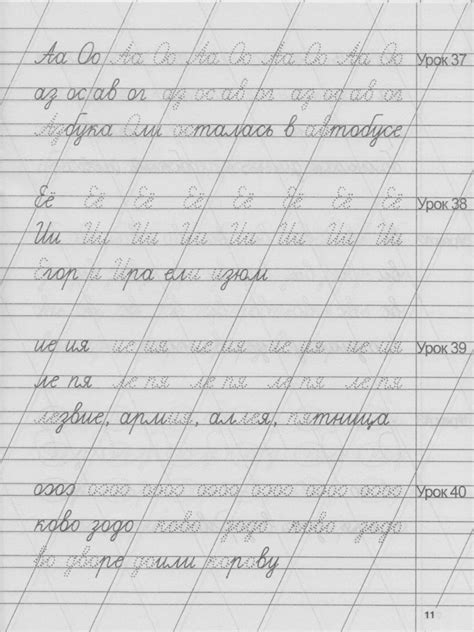 Аа Оо Аа Оо Аа Оо Аа Оо Аа Оо Урок 37
аз ос ав ог аз ос ав ог аз од ав ог
Азбука Оли осталась в автобусе
Её Её Её Её Её Её Её Её Урок 38
Ии Ии Ии Ии Ии Ии Ии Ии
Егор и Ира ели изюм
ие ия ие ия ие ия ие ия ие ия Урок 39
ле пя ле пя ле пя ле пя ле пя
лезвие, армия, аллея, пятница
Урок 40
ково зодо ково зодо ково зодо
Во дворе доили корову
11